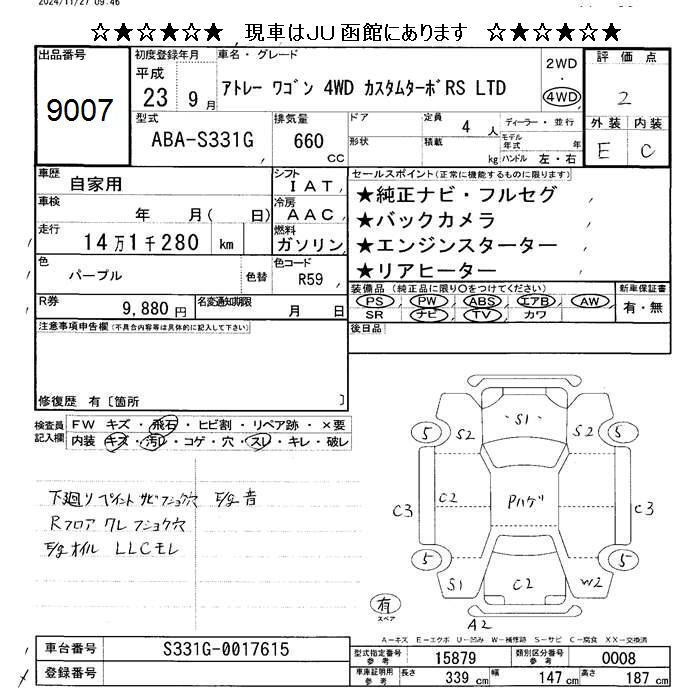 2024/11/27 09:46
☆★☆★☆★ 現車はJU函館にあります ☆★☆★☆★
出品番号
9007
初度登録年月
平成
23 9月
車名・グレード
アトレー ワゴン 4WD カスタムターボRS LTD
2WD
・
4WD
評価点
2
外装 内装
E C
型式
ABA-S331G
排気量
660
CC
ドア
形状
定員
4 人
積載
kg
ディーラー・並行
モデル年式 年
ハンドル 左・右
車歴
自家用
シフト
IAT
車検
年 月( 日)
冷房
AAC
走行
14万1千280 km
燃料
ガソリン
色
パープル
色替
色コード
R59
R券
9,880円
名変通知期限
月 日
セールスポイント(正常に機能するものに限ります)
★純正ナビ・フルセグ
★バックカメラ
★エンジンスターター
★リアヒーター
装備品 (純正品に限り○をつけてください)
PS PW ABS エアB AW
SR ナビ TV カワ
新車保証書
有・無
後日品
注意事項申告欄(不具合内容等は具体的に記入して下さい)
修復歴 有〔箇所 〕
検査員記入欄
FW キズ・飛石・ヒビ割・リペア跡・×要
内装 キズ・汚レ・コゲ・穴・スレ・キレ・破レ
下廻りペイントサビフショク穴 E/g音
Rフロア ワレ フショク穴
E/gオイル LLCモレ
S1
5 S2 S2 5
C3 C2 Pハゲ C3
5 5
S1 C2 W2
A2
有
スペア
A-キズ E-エクボ U-凹み W-補修跡 S-サビ C-腐食 XX-交換済
車台番号
S331G-0017615
登録番号
型式指定番号
参考
15879
類別区分番号
参考
0008
車庫証明用
参考
長さ 339 cm
幅 147 cm
高さ 187 cm